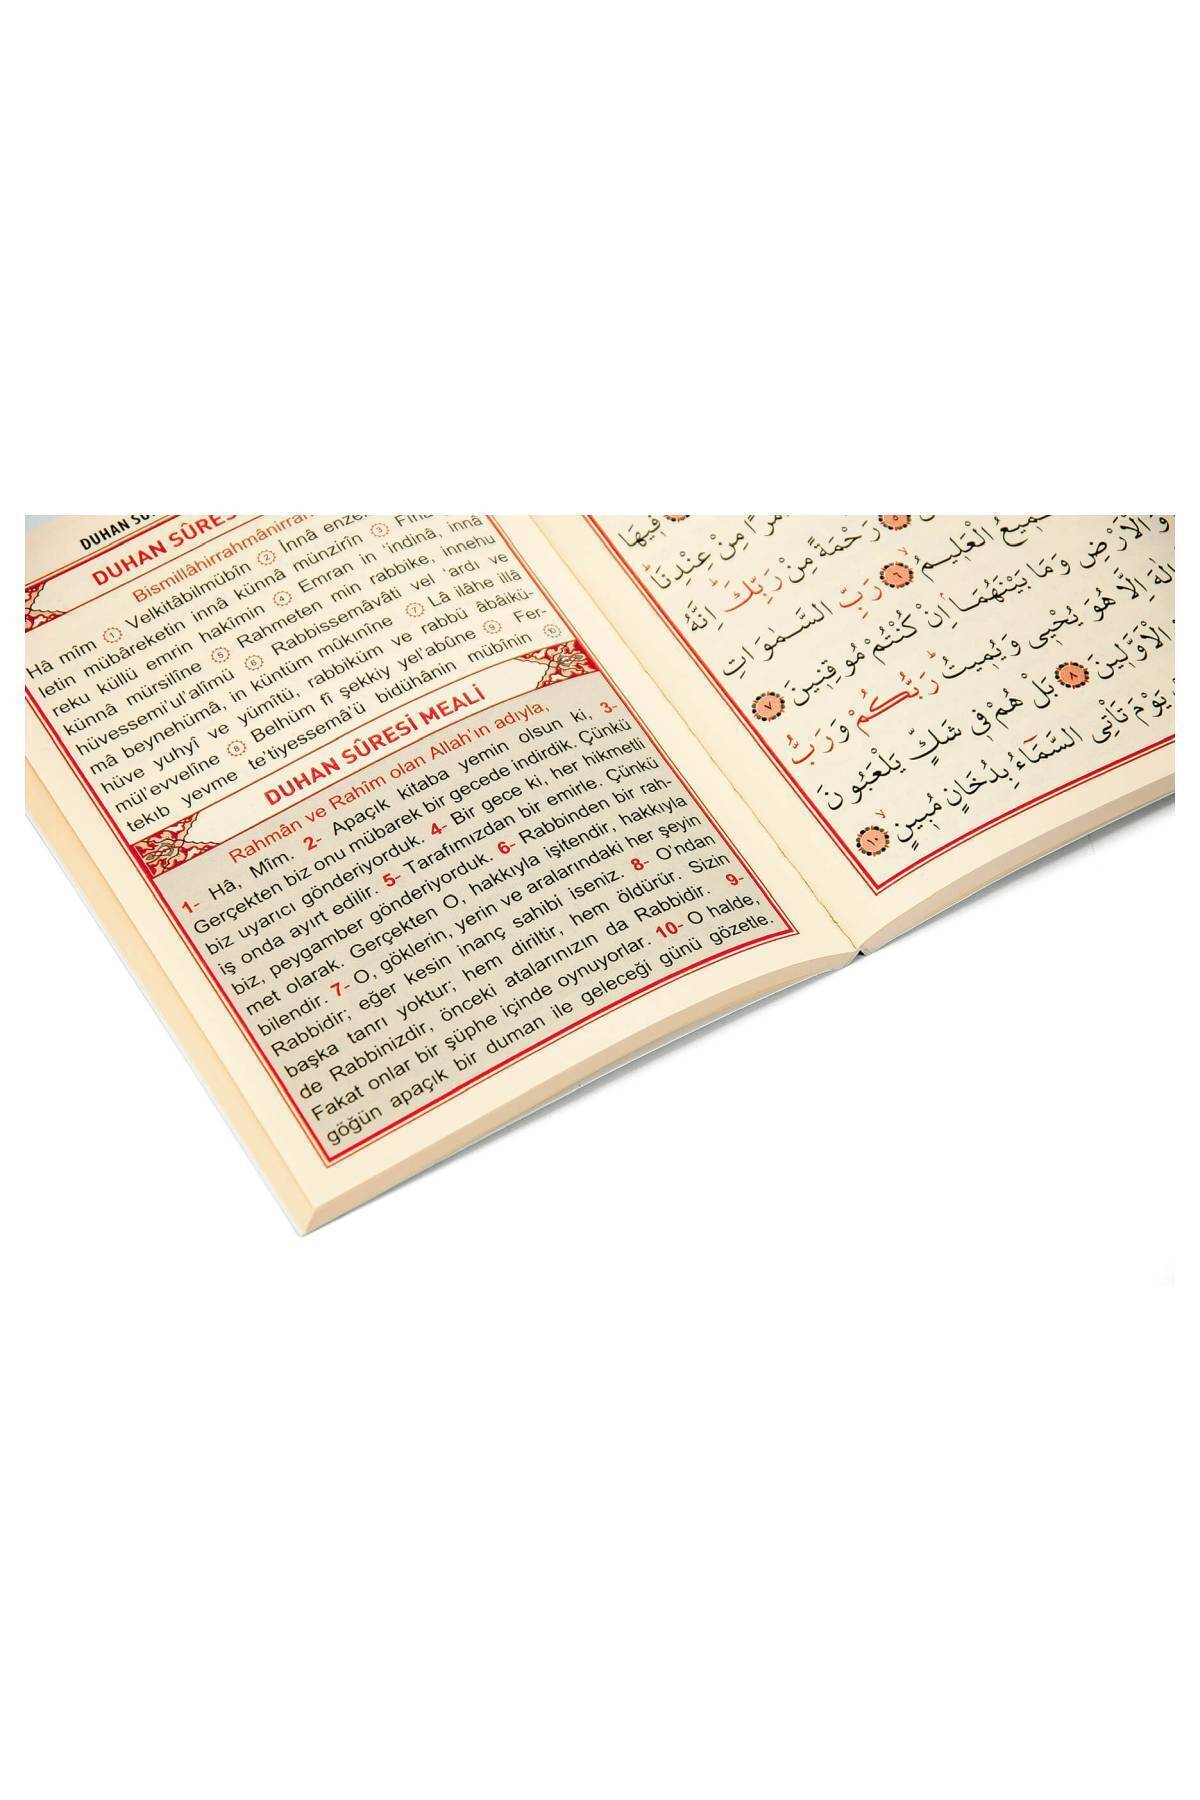 DUHAN
DUHAN SÛRES
Bismillâhirrahmânirrah
Hâ mîm ① Velkitâbilmübîn ② İnnâ enzel
letin mübâreketin innâ künnâ münzirîn ③ Fîhâ
reku küllü emrin hakîmin ④ Emran in 'indinâ, innâ
künnâ mürsilîne ⑤ Rahmeten min rabbike, innehu
hüvessemi'ul'alîmü ⑥ Rabbissemâvâti vel 'ardı ve
mâ beynehümâ, in küntüm mûkınîne ⑦ Lâ ilâhe illâ
hüve yuhyî ve yümîtü, rabbiküm ve rabbü âbâikü-
mül'evvelîne ⑧ Belhüm fî şekkiy yel'abûne ⑨ Fer-
tekıb yevme te'tiyessemâ'ü bidühânin mübînin ⑩
DUHAN SÛRESİ MEALİ
Rahmân ve Rahîm olan Allah'ın adıyla,
1- Hâ, Mîm. 2- Apaçık kitaba yemin olsun ki, 3-
Gerçekten biz onu mübarek bir gecede indirdik. Çünkü
biz uyarıcı gönderiyorduk. 4- Bir gece ki, her hikmetli
iş onda ayırt edilir. 5- Tarafımızdan bir emirle. Çünkü
biz, peygamber gönderiyorduk. 6- Rabbinden bir rah-
met olarak. Gerçekten O, hakkıyla işitendir, hakkıyla
bilendir. 7- O, göklerin, yerin ve aralarındaki her şeyin
Rabbidir; eğer kesin inanç sahibi iseniz. 8- O'ndan
başka tanrı yoktur; hem diriltir, hem öldürür. Sizin
de Rabbinizdir, önceki atalarınızın da Rabbidir. 9-
Fakat onlar bir şüphe içinde oynuyorlar. 10- O halde,
göğün apaçık bir duman ile geleceği günü gözetle.
فِيهَا
اَمْرًا مِنْ عِنْدِنَا
رَحْمَةً مِنْ رَبِّكَ اِنَّهُ
السَّمِيعُ الْعَلِيمُ ٦ رَبِّ السَّمٰوَاتِ
وَالْاَرْضِ وَمَا بَيْنَهُمَا اِنْ كُنْتُمْ مُوقِنِينَ ٧
اِلٰهَ اِلَّا هُوَ يُحْيِي وَيُمِيتُ رَبُّكُمْ وَرَبُّ
الْاَوَّلِينَ ٨ بَلْ هُمْ فِي شَكٍّ يَلْعَبُونَ
يَوْمَ تَأْتِي السَّمَاءُ بِدُخَانٍ مُبِينٍ ١٠